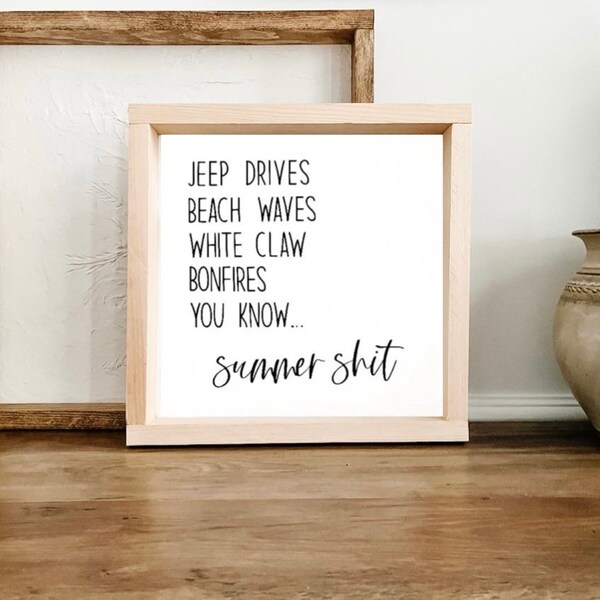 JEEP DRIVES
BEACH WAVES
WHITE CLAW
BONFIRES
YOU KNOW...
summer shit